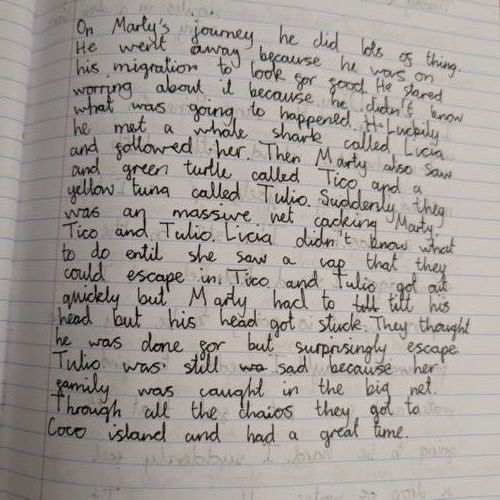 On Marty's journey he did lots of thing.
He went away because he was on
his migration to look for food. He stared
worring about it because he didn't know
what was going to happened. Luckily
he met a whale shark called Licia
and followed her. Then Marty also saw
and green turtle called Tico and a
yellow tuna called Tulio. Suddenly they
was an massive net caching Marty,
Tico and Tulio. Licia didn't know what
to do entil she saw a cap that they
could escape in. Tico and Tulio got out
quickly but Marty had to tilt his
head but his head got stuck. They thought
he was done for but surprisingly escape
Tulio was still sad because her
family was caught in the big net.
Through all the chaios they got to
Coco island and had a great time.